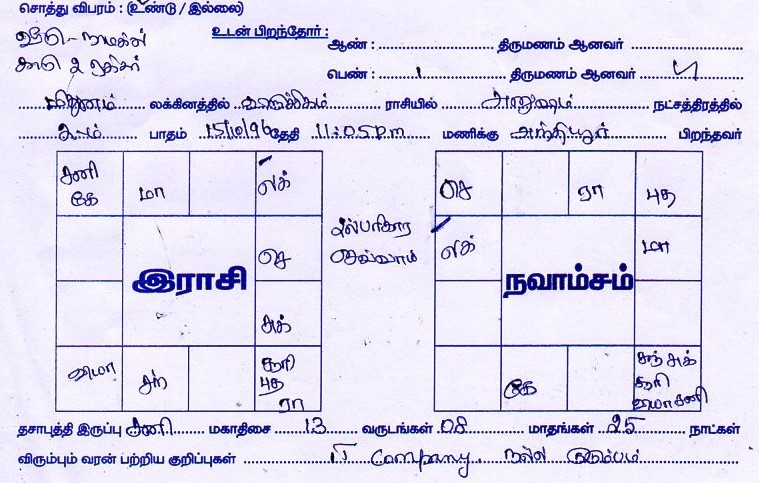 சொத்து விபரம் : (உண்டு / இல்லை)
உடன் பிறந்தோர் :
ஆண் : திருமணம் ஆனவர்
பெண் : 1 திருமணம் ஆனவர்
மிதுனம் லக்கினத்தில் விருச்சிகம் ராசியில் அனுஷம் நட்சத்திரத்தில்
2ம் பாதம் 15/10/96 தேதி 11:05 pm மணிக்கு அந்தியூர் பிறந்தவர்
சனி கே
மா
லக்
செ
சுக்
சூரி புத ரா
சந்
இராசி
செ
ரா
புத
லக்
மா
நவாம்சம்
கே
சந் சுக்
சூரி
சனி
தசாபுத்தி இருப்பு சனி மகாதிசை 13 வருடங்கள் 08 மாதங்கள் 25 நாட்கள்
விரும்பும் வரன் பற்றிய குறிப்புகள் IT Company. நல்ல குடும்பம்